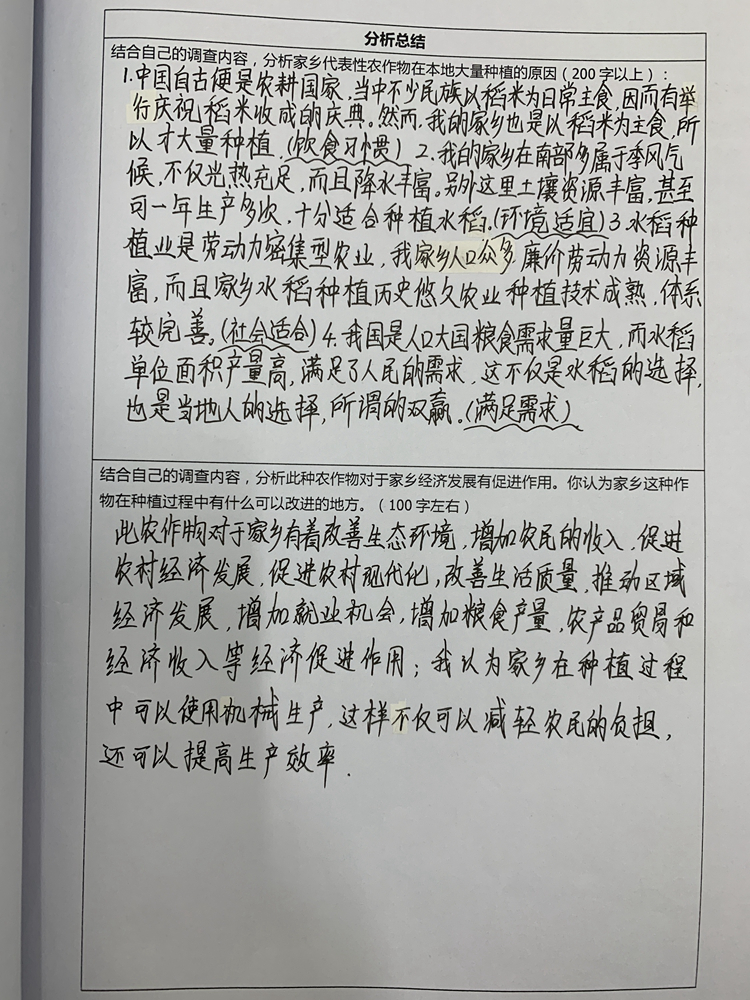 分析总结
结合自己的调查内容，分析家乡代表性农作物在本地大量种植的原因（200字以上）：
1.中国自古便是农耕国家，当中不少民族以稻米为日常主食，因而有举
行庆祝稻米收成的庆典。然而，我的家乡也是以稻米为主食，所
以才大量种植。(饮食习惯) 2.我的家乡在南部多属于季风气
候，不仅光热充足，而且降水丰富。另外这里土壤资源丰富，甚至
可一年生产多次，十分适合种植水稻。(环境适宜) 3.水稻种
植业是劳动力密集型农业，我家乡人口众多，廉价劳动力资源丰
富，而且家乡水稻种植历史悠久农业种植技术成熟，体系
较完善。(社会适合) 4.我国是人口大国粮食需求量巨大，而水稻
单位面积产量高，满足了人民的需求，这不仅是水稻的选择，
也是当地人的选择，所谓的双赢。(满足需求)
结合自己的调查内容，分析此种农作物对于家乡经济发展有促进作用。你认为家乡这种作
物在种植过程中有什么可以改进的地方。（100字左右）
此农作物对于家乡有着改善生态环境，增加农民的收入，促进
农村经济发展，促进农村现代化，改善生活质量，推动区域
经济发展，增加就业机会，增加粮食产量，农产品贸易和
经济收入等经济促进作用；我以为家乡在种植过程
中可以使用机械生产，这样不仅可以减轻农民的负担，
还可以提高生产效率.